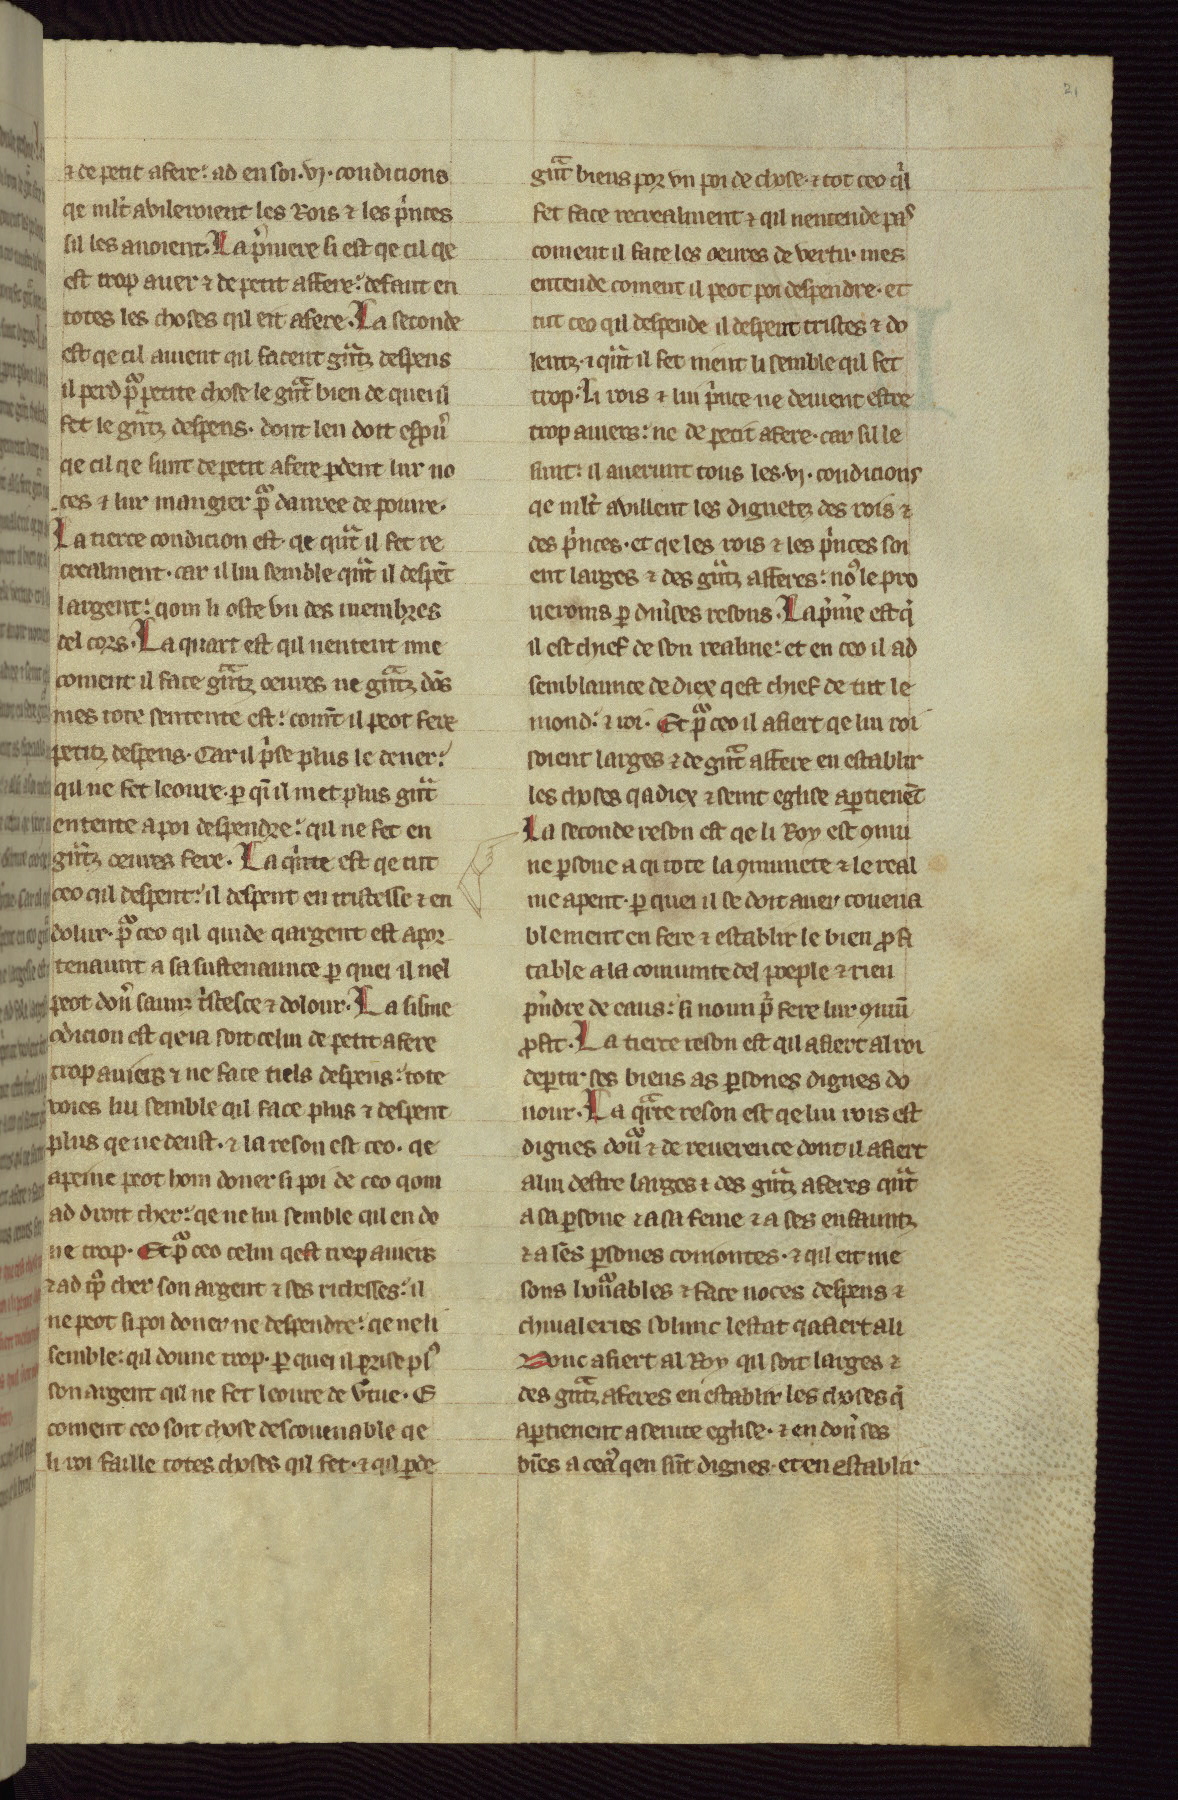 21
⁊ de petit afere: ad en soi .vj. condicions
qe mlt̄ avileroient les Rois ⁊ les p̉nces
sil les auoient. La p̉mere si est qe cil qe
est trop auer ⁊ de petit affere: defaut en
totes les choses qil eit afere. La seconde
est qe cil auient qil facent gᵃntz despens
il perd pᵃ petite chose le gᵃnt bien de quei il
fet le gᵃntz despens. dont len doit
qe cil qe sunt de petit afere ꝑdent lur no
ces ⁊ lur mangier pᵃ danree de poiure.
La tierce condicion est qe qᵃnt il fet re
crealment. car il lui semble qᵃnt il despēt
largent: qom li oste vn des membres
del cors. La quart est qil nentent mie
coment il face gᵃntz oeures ne gᵃntz dōs
mes tote sentente est: comt̄ il peot fere
petitz despens. Car il p̉se plus le dener:
qil ne fet leoure. ꝑ qi il met plus gᵃnt
entente a poi despendre: qil ne fet en
gᵃntz oeures fere. La qⁱnte est qe tut
ceo qil despent: il despent en tristesse ⁊ en
dolur. pᵃ ceo qil quide qargent est apor
tenaunt a sa sustenaunce ꝑ quei il nel
peot don̄ saunz tⁱstesce ⁊ dolour. La sisme
ꝯdicion est qe ia soit celui de petit afere
trop auiers ⁊ ne face tiels despens: tote
voies lui semble qil face plus ⁊ despent
plus qe ne deust. ⁊ la reson est ceo. qe
apeine peot hom doner si poi de ceo qom
ad droit cher: qe ne lui semble qil en do
ne trop. Et pᵃ ceo celui qest trop auiers
⁊ ad tᵒp cher son argent ⁊ ses richesses: il
ne peot si poi doner ne despendre: qe ne li
semble: qil donne trop. ꝑ quei il prise plꝰ
son argent qil ne fet leoure de v̉tue. E
coment ceo soit chose descouenable qe
li roi faille totes choses qil fet. ⁊ qil ꝑde
gᵃnt biens por vn poi de chose. ⁊ tot ceo qⁱl
fet face recrealment ⁊ qil nentende pas
coment il face les oeures de vertu. mes
entende coment il peot poi despendre. et
tut ceo qil despende il despent tristes ⁊ do
lentz. ⁊ qᵃnt il fet ment li semble qil fet
trop. Li rois ⁊ lui p̉nce ne deiuent estre
trop auiers: ne de petit afere. car sil le
sunt: il auerunt tous les .vj. condicions
qe mlt̄ avillent les dignetez des rois ⁊
des p̉nces. et qe les rois ⁊ les p̉nces soi
ent larges ⁊ des gᵃntz afferes: noꝰ le pro
ueroms ꝑ diủses resons. La p̉me est qⁱ
il est chief de son realme: et en ceo il ad
semblaunce de diex qest chief de tut le
mond: ⁊ roi. Et pᵃ ceo il afiert qe lui roi
soient larges ⁊ de gᵃnt affere en establir
les choses qa diex ⁊ seint eglise aꝑtienēt
La seconde reson est qe li Roy est ꝯmu
ne ꝑsone a qi tote la ꝯmunete ⁊ le real
me apent. ꝑ quei il se doit auer couena
blement en fere ⁊ establir le bien ꝓfi
table a la comunte del poeple ⁊ rien
p̉ndre de eaus: si noun pᵃ fere lur ꝯmū
ꝓfit. La tierce reson est qil afiert al roi
deꝑtir ses biens as ꝑsones dignes do
nour. La qᵃrte reson est qe lui rois est
dignes dou᷑ ⁊ de reuerence dont il afiert
a lui destre larges ⁊ des gᵃntz aferes qᵃnt
a sa ꝑsone ⁊ a sa feme ⁊ a ses enfauntz
⁊ a sēs ꝑsones comontes. ⁊ qil eit me
sons honᵃables ⁊ face noces despens ⁊
chiualeries solunc lestat qafiert a li
Donc afiert al Roy qil soit larges ⁊
des gᵃntz aferes en establir les choses qⁱ
aꝑtienent a seinte eglise. ⁊ en don̄ ses
biēs a ceaꝰ qen sūt dignes. et en establir